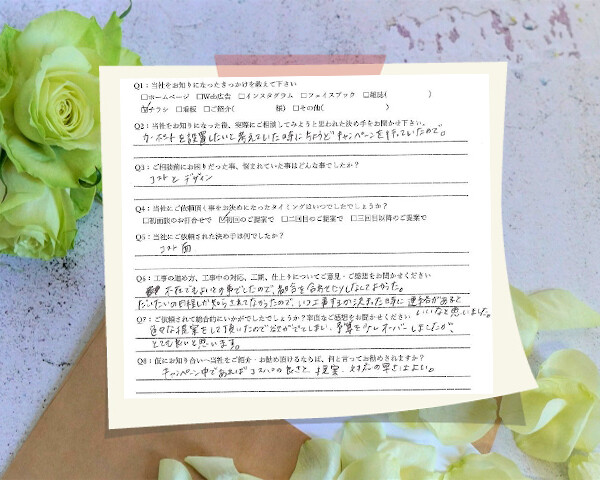 Q1：当社をお知りになったきっかけを教えて下さい
□ホームページ □Web広告 □インスタグラム □フェイスブック □雑誌( )
☑チラシ □看板 □ご紹介( 様) □その他( )
Q2：当社をお知りになった後、実際にご相談してみようと思われた決め手をお聞かせ下さい。
カーポートを設置したいと考えていた時にちょうどキャンペーンを行っていたので。
Q3：ご相談前にお困りだった事、悩まれていた事はどんな事でしたか？
コストとデザイン
Q4：当社にご依頼頂く事をお決めになったタイミングはいつでしたでしょうか？
□初面談のお打合せで ☑初回のご提案で □二回目のご提案で □三回目以降のご提案で
Q5：当社にご依頼された決め手は何でしたか？
コスト面
Q6：工事の進め方、工事中の対応、工期、仕上りについてご意見・ご感想をお聞かせください
不在でもよいとの事でしたので、都合を合わせたりしなくてよかった。
だいたいの日程しか知らされてなかったので、いつ工事するか決まった時に連絡があると
いいなと思いました。
Q7：ご依頼されて総合的にいかがでしたでしょうか？率直なご感想をお聞かせください
色々な提案をして頂いたので欲がでてしまい、予算を少しオーバーしましたが、
とても良いと思います。
Q8：仮にお知り合いへ当社をご紹介・お勧め頂けるならば、何と言ってお勧めされますか？
キャンペーン中であればコスパの良さと、提案、対応の早さはよい。